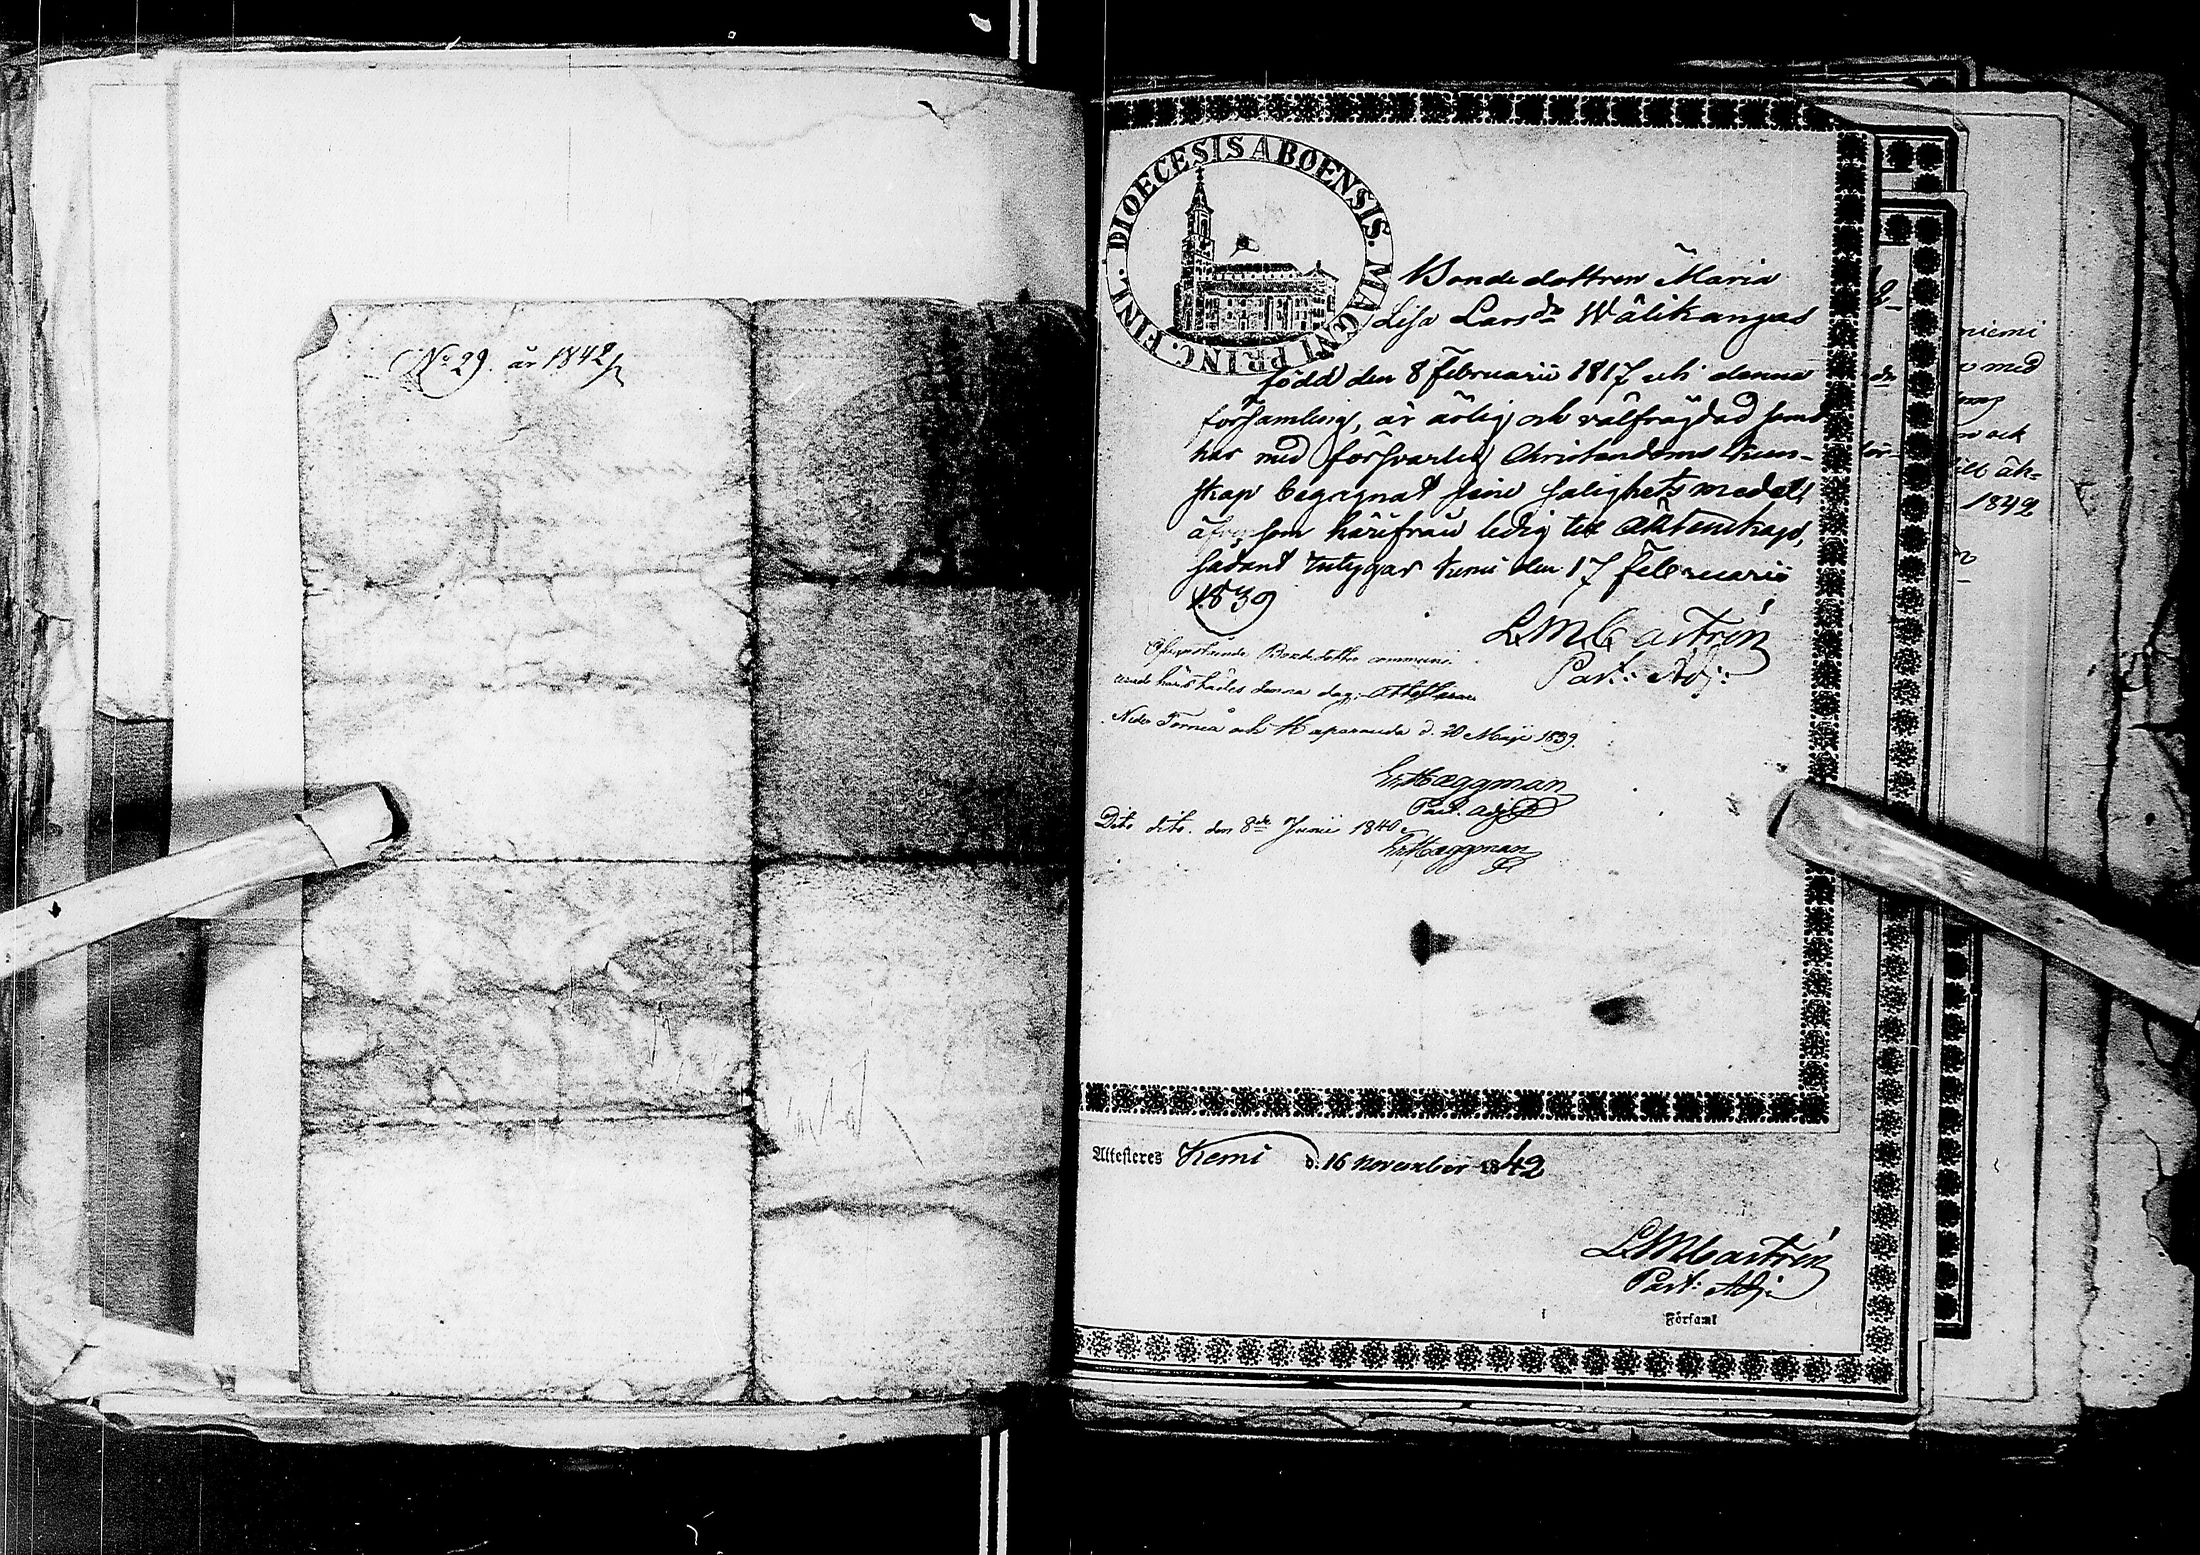 No 29. år 1842
DIOECESIS ABOENSIS. MAGNI PRINC. FINL.
Bondedottren Maria
Lisa Larsdr Wälikangas
född den 8 Februarii 1817 uti denna
församling, är ärlig och välfrägdad samt
har med försvarlig Christendoms kun-
skap begagnat sine salighets medel,
äfven som härifrån ledig till Äktenskap,
sådant intygar Kemi den 17 Februarii
1839
L.M. Castrén
Past: Adj:
Ofvanstående Bondedotter communi-
cerade härstädes denna dag; Attesteras
Neder Torneå och Haparanda d. 20 Maji 1839.
Er. Hæggman
Past. adj.
Dito dito. den 8de Junii 1840.
Er. Hæggman
Attesteres Kemi d. 16 November 1842
L.M. Castrén
Past: Adj:
Församl
niemi
med
och
till äk-
1842